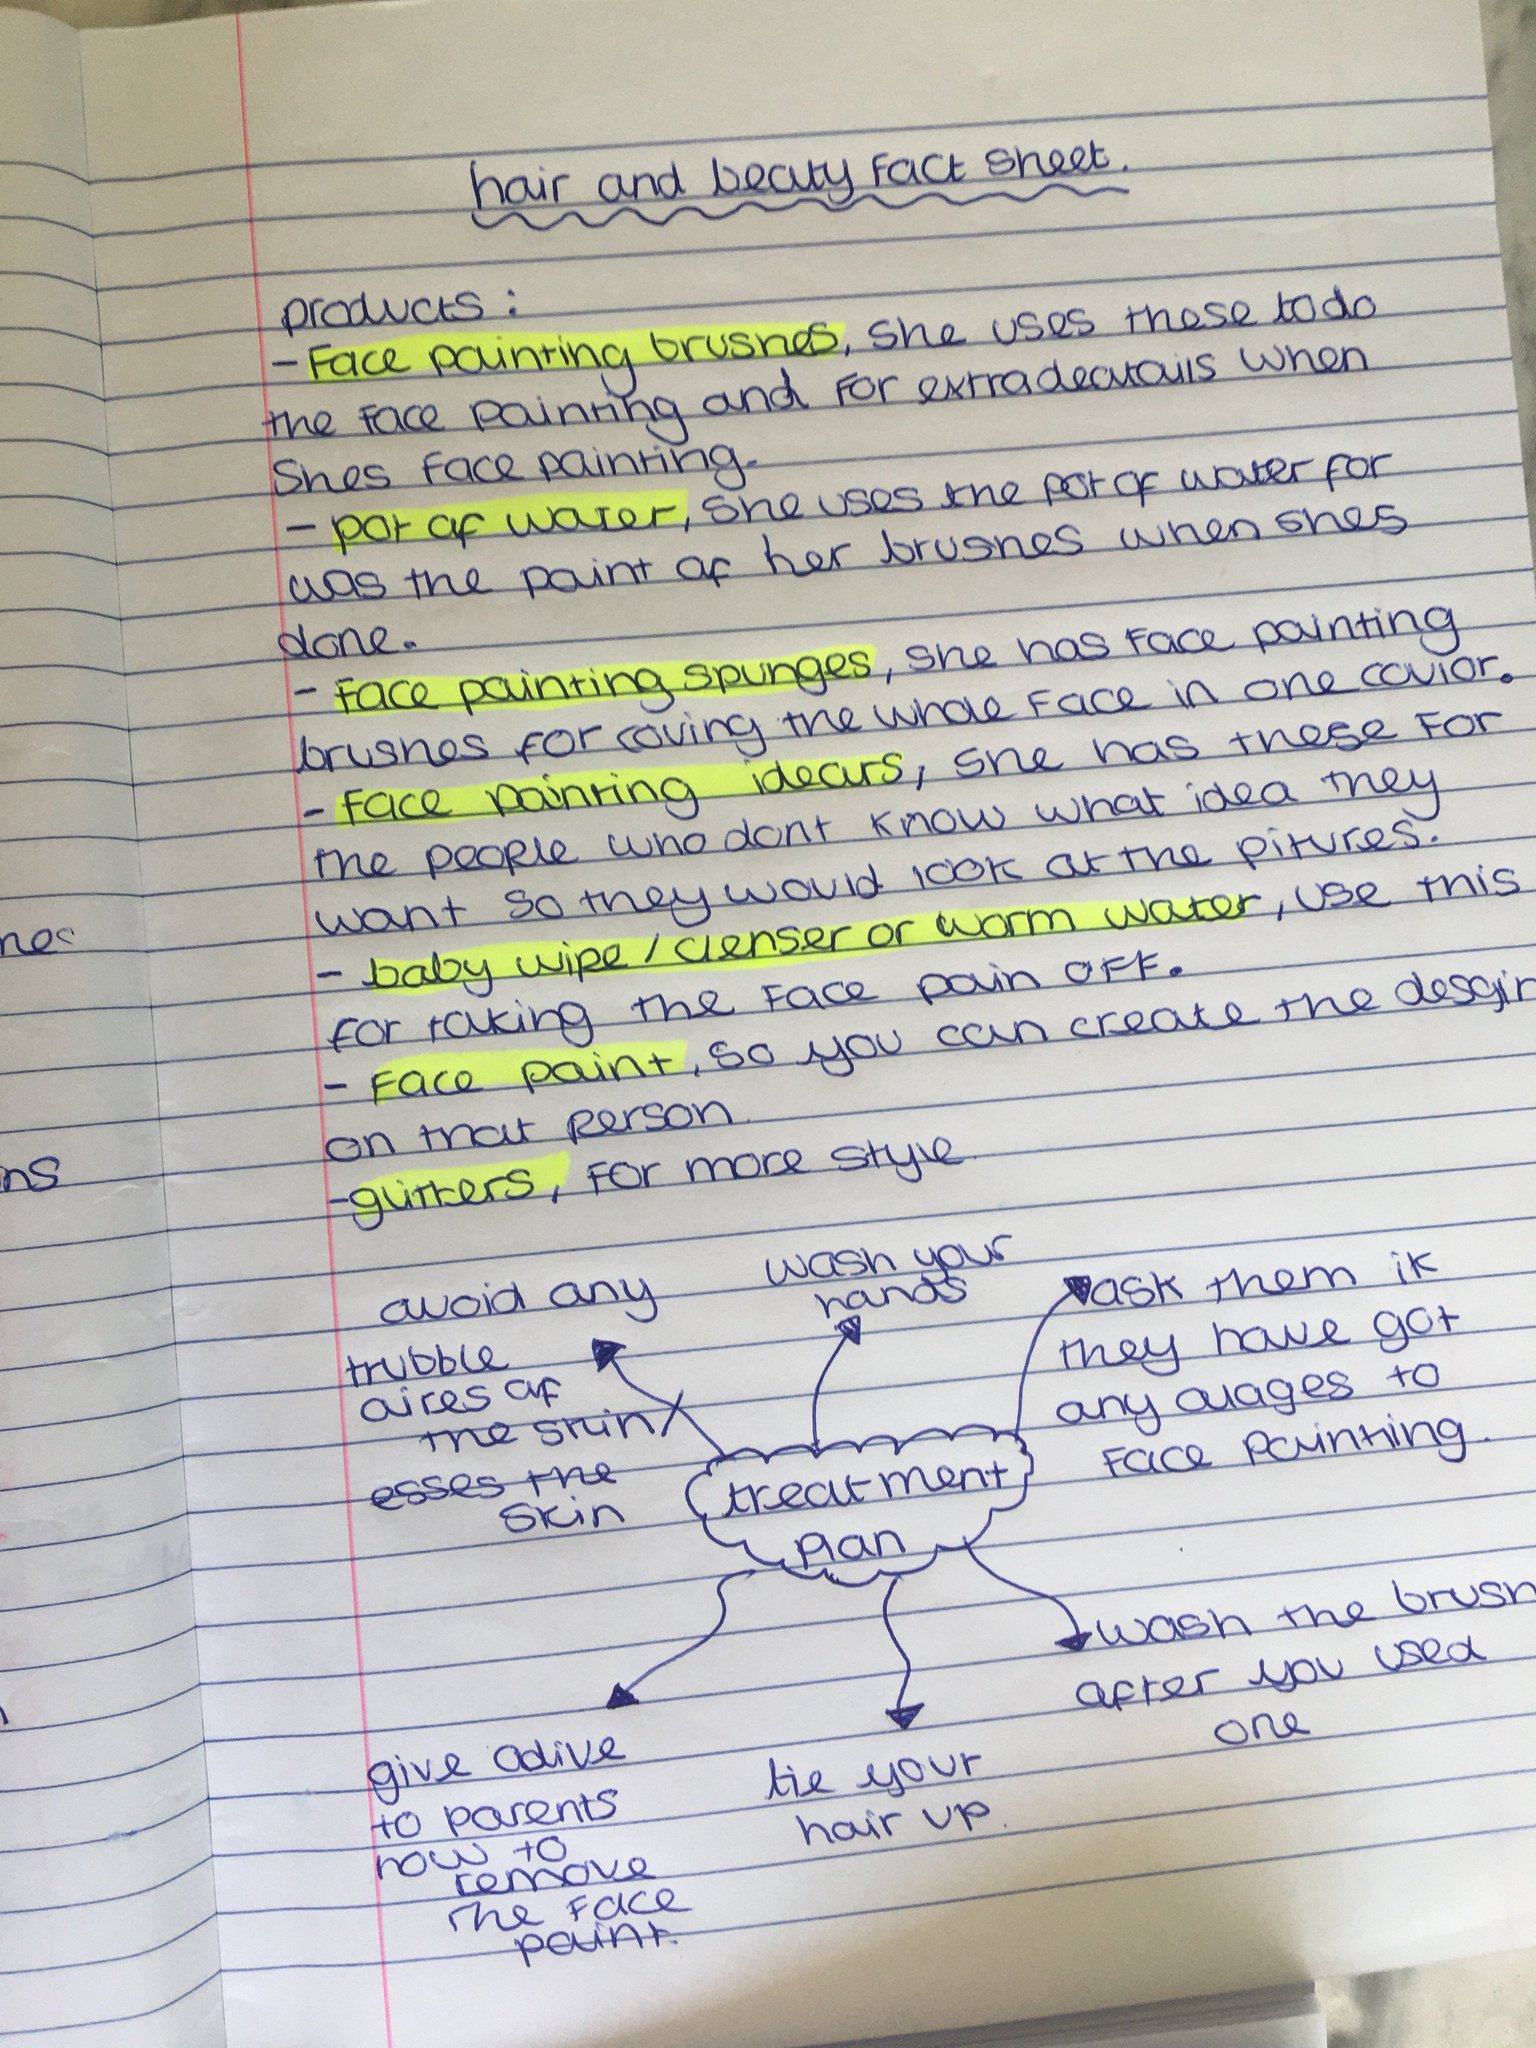 hair and beauty fact sheet.
products :
- Face painting brushes, she uses these to do
the face painting and for extra deatails when
Shes face painting.
- pot of water, she uses the pot of water for
was the paint of her brushes when shes
done.
- Face painting spunges, she has face painting
brushes for coving the whole face in one covior.
- Face painting idears, she has these for
the people who dont know what idea they
want so they would look at the pitures.
- baby wipe / clenser or warm water, use this
for taking the face pain off.
- Face paint, so you can create the desgin
on that person.
- glitters, for more style
avoid any
trubble
aires of
the skin /
esses the
skin
wash your
hands
ask them if
they have got
any alages to
face painting.
treatment
plan
wash the brush
after you used
one
give adive
to parents
how to
remove
the face
paint.
tie your
hair up.
nes
ns